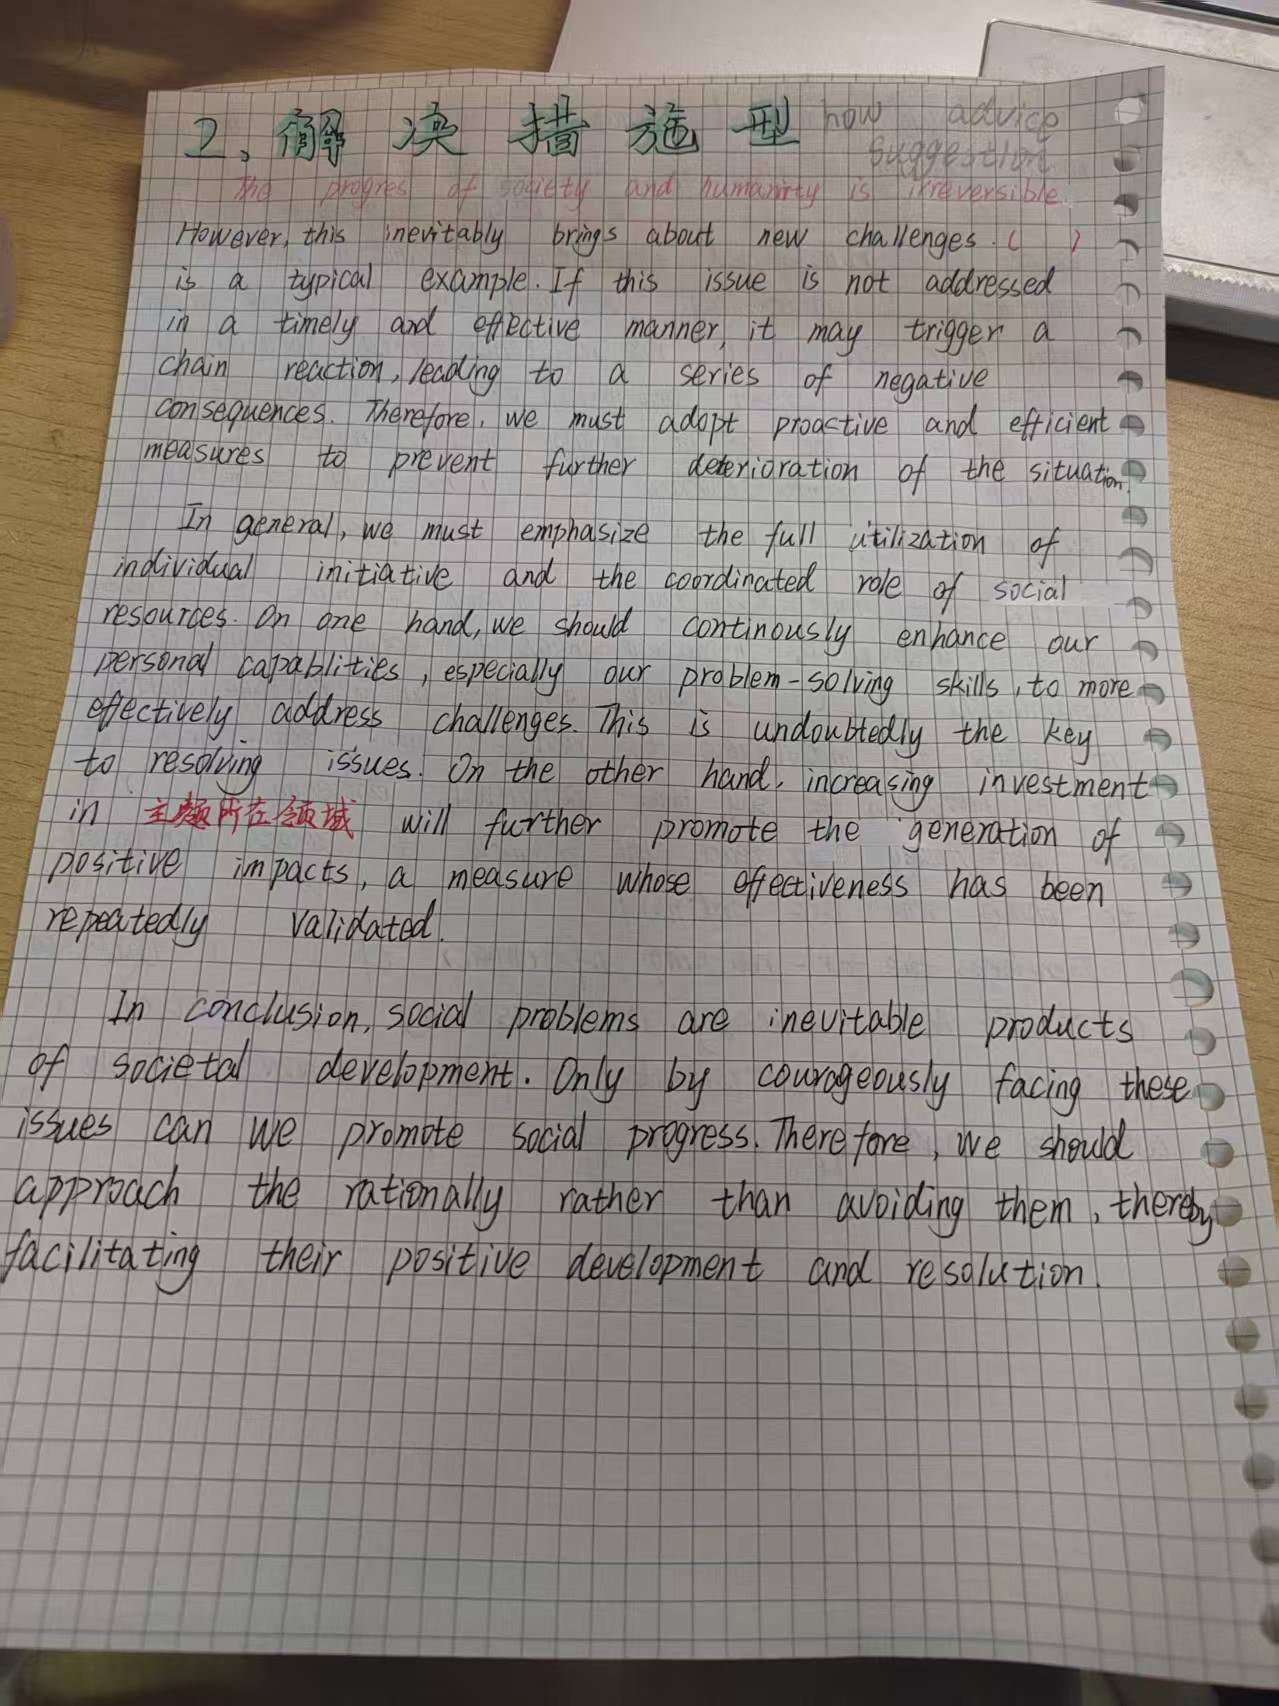 2、解决措施型 how advice
suggestion
The progres of society and humanirty is irreversible.
However, this inevitably brings about new challenges. ( )
is a typical example. If this issue is not addressed
in a timely and effective manner, it may trigger a
chain reaction, leading to a series of negative
consequences. Therefore, we must adopt proactive and efficient
measures to prevent further deterioration of the situation.
In general, we must emphasize the full utilization of
individual initiative and the coordinated role of social
resources. On one hand, we should continously enhance our
personal capablities, especially our problem-solving skills, to more
effectively address challenges. This is undoubtedly the key
to resolving issues. On the other hand, increasing investment
in 主题所在领域 will further promote the generation of
positive impacts, a measure whose effectiveness has been
repeatedly validated.
In conclusion, social problems are inevitable products
of societal development. Only by courageously facing these
issues can we promote social progress. Therefore, we should
approach the rationally rather than avoiding them, thereby
facilitating their positive development and resolution.